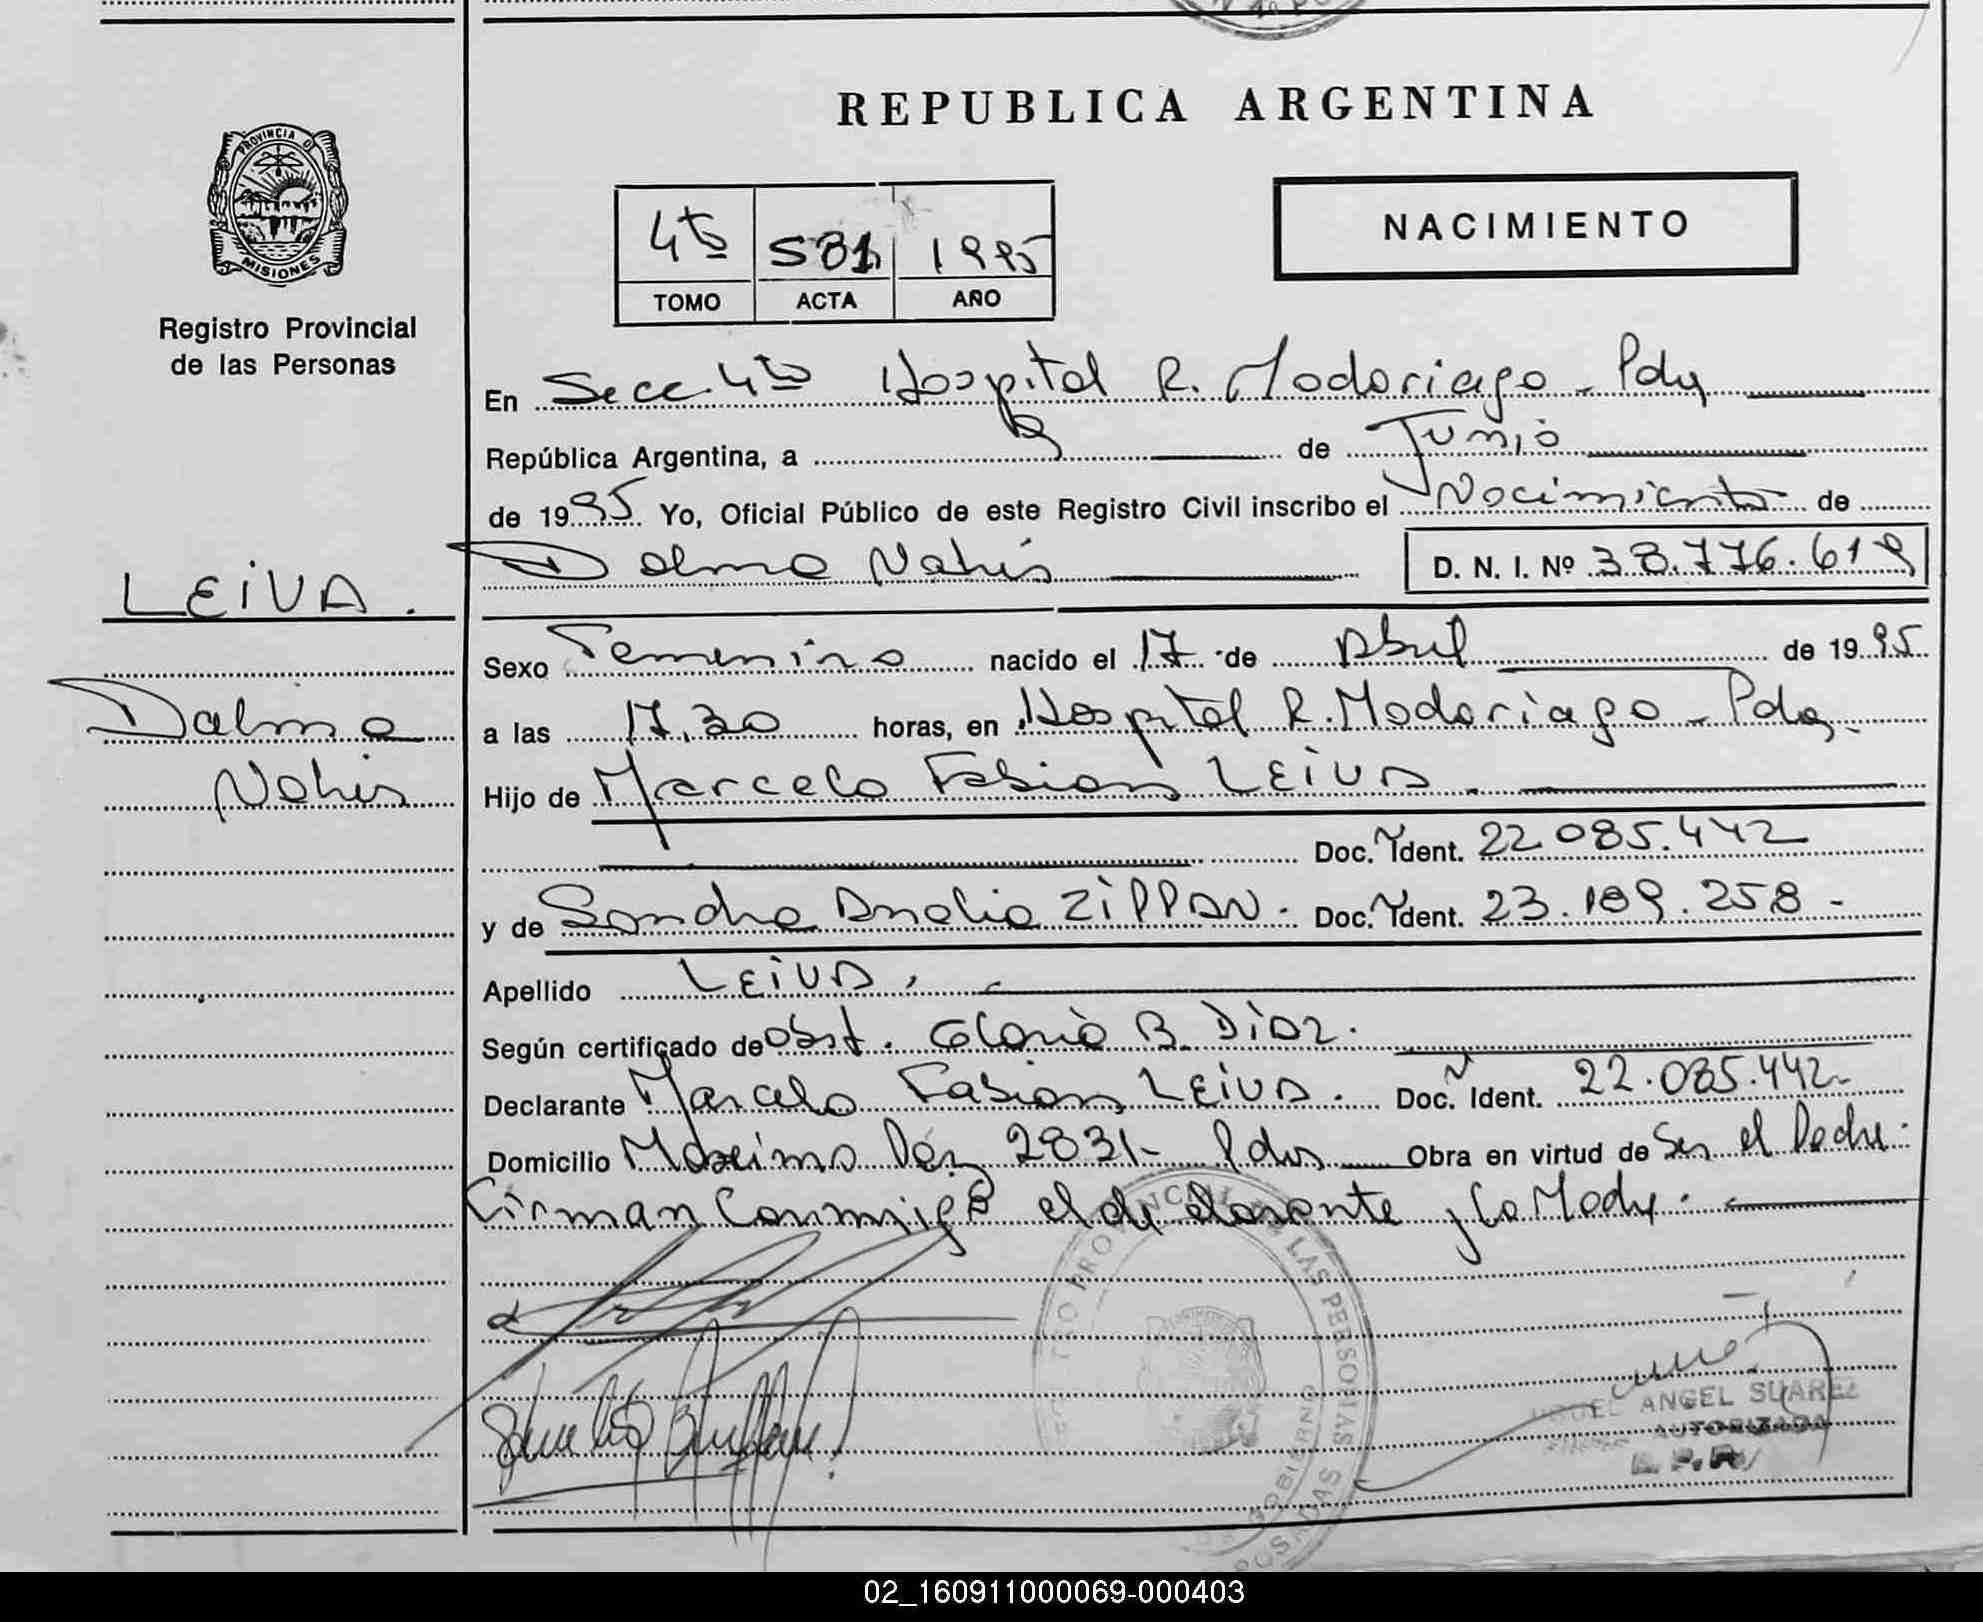 REPUBLICA ARGENTINA
PROVINCIA DE
MISIONES
Registro Provincial
de las Personas
4to 1995
TOMO ACTA AÑO
NACIMIENTO
En Secc. 4ta Hospital R. Madariaga - Pdas
República Argentina, a 9 de Junio
de 1995 Yo, Oficial Público de este Registro Civil inscribo el Nacimiento de
Dalma Nahir D. N. I. Nº 38.776.619
LEIVA.
Sexo Femenino nacido el 17 de Abril de 1995
Dalma
a las 17,30 horas, en Hospital R. Madariaga - Pdas.
Nahir
Hijo de Marcelo Fabian LEIVA.
Doc. Ident. 22.085.442
y de Sandra Analia ZILLAN. Doc. Ident. 23.189.258 -
Apellido LEIVA.
Según certificado de Obst. Gloria B. Diaz.
Declarante Marcelo Fabian LEIVA. Doc. Ident. 22.085.442-
Domicilio Maximo Paz 2831- Pdas Obra en virtud de Ser el Padre.
Firman Conmigo el declarante y la Madre.
REGISTRO PROVINCIAL DE LAS PERSONAS
GOBIERNO
POSADAS
ANGEL SUAREZ
AUTORIZADA
R. P. P.
02_160911000069-000403